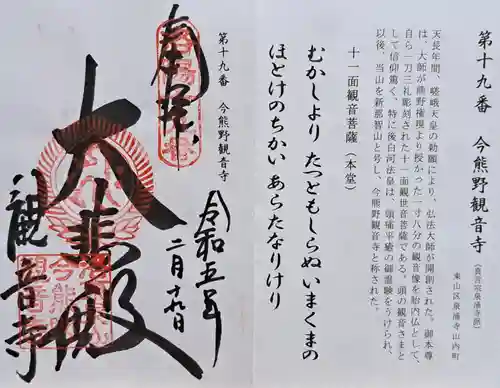 第十九番 今熊野観音寺
(真言宗泉涌寺派)
東山区泉涌寺山内町
天長年間、嵯峨天皇の勅願により、弘法大師が開創された。御本尊
は、大師が熊野権現より授かった一寸八分の観音像を胎内仏として、
自ら一刀三礼彫刻された十一面観世音菩薩である。頭の観音さまと
して信仰篤く、特に後白河法皇は、頭痛平癒の御霊験をうけられ、
以後、当山を新那智山と号し、今熊野観音寺と称された。
十一面観音菩薩(本堂)
むかしより たつともしらぬ いまくまの
ほとけのちかい あらたなりけり
第十九番 今熊野観音寺
奉拝
令和五年
二月十九日
大悲殿
観音寺